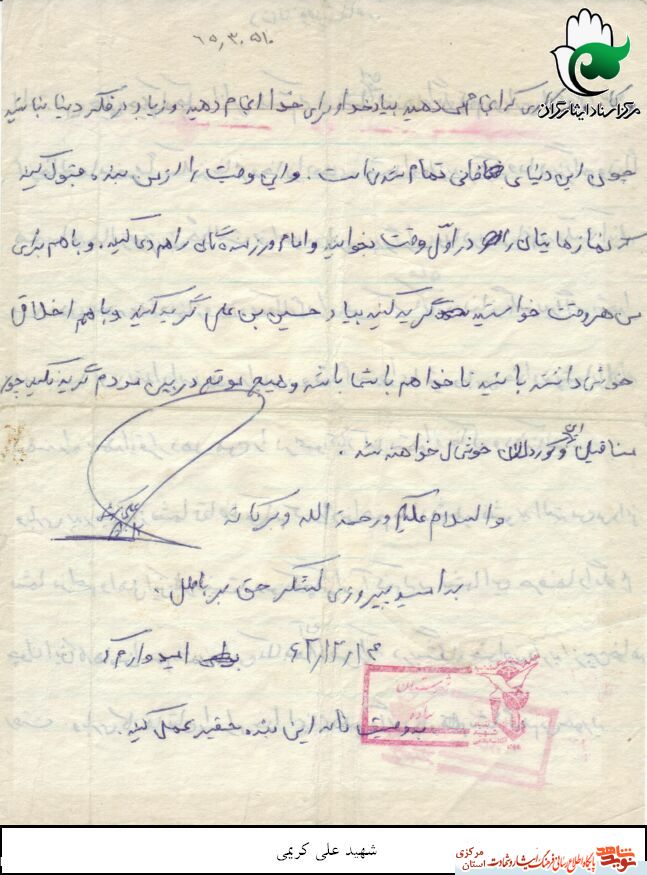 ۶۵٫۳٫۵۱۰
مرکز اسناد ایثارگران
کاری که انجام می دهید بیاد خدا و برای خدا انجام دهید و زیاد در فکر دنیا نباشید
چون این دنیای فانی تمام شدنی است . و این وصیت را از من بنده قبول کنید
که نمازهایتان را در اول وقت بخوانید و امام و رزمندگان را هم دعا کنید . و باهم برای
من هر وقت خواستید گریه کنید بیاد حسین بن علی گریه کنید و با هم اخلاق
خوش داشته باشید تا خدا هم با شما باشد و هیچ موقع در بین مردم گریه نکنید چون
منافقین و کوردلان خوشحال خواهند شد .
والسلام علیکم و رحمة الله و برکاته
به امید پیروزی لشگر حق بر باطل .
امیدوارم که
به وصیت نامه این بنده حقیر عمل کنید .
شهید علی کریمی
نوید شاهد
پایگاه اطلاع رسانی فرهنگ ایثار و شهادت
استان مرکزی